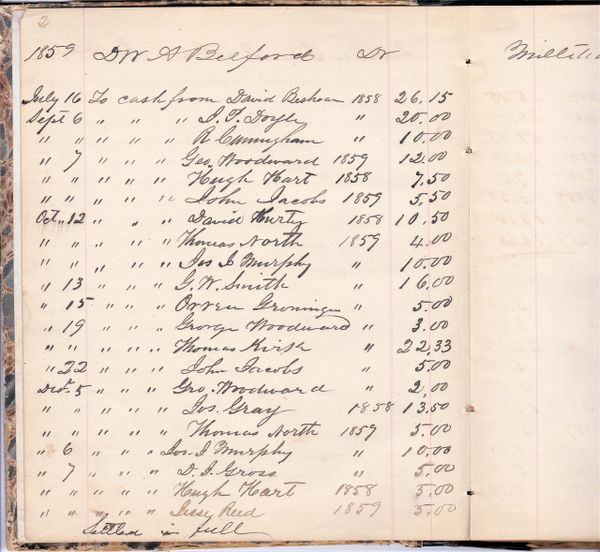 2
1859 DW A Belford Dr
July 16 To cash from David Beshoar 1858 26.15
Sept 6 " " " J. T. Doyle " 20.00
" " " " " R Cunningham " 10.00
" 7 " " " Geo. Woodward 1859 12.00
" " " " " Hugh Hart 1858 7.50
" " " " " John Jacobs 1859 5.50
Oct. 12 " " " David Hurty 1858 10.50
" " " " " Thomas North 1859 4.00
" " " " " Jos I Murphy " 10.00
" 13 " " " G. W. Smith " 16.00
" 15 " " " Orren Groninger " 5.00
" 19 " " " George Woodward " 3.00
" " " " " Thomas Kirsk " 22.33
" 22 " " " John Jacobs " 5.00
Dec. 5 " " " Geo. Woodward " 2.00
" " " " " Jos. Gray 1858 13.50
" " " " " Thomas North 1859 5.00
" 6 " " " Jos. I Murphy " 10.00
" 7 " " " D. I. Gross " 5.00
" " " " " Hugh Hart 1858 5.00
" " " " " Jesse Reed 1859 5.00
Settled in full